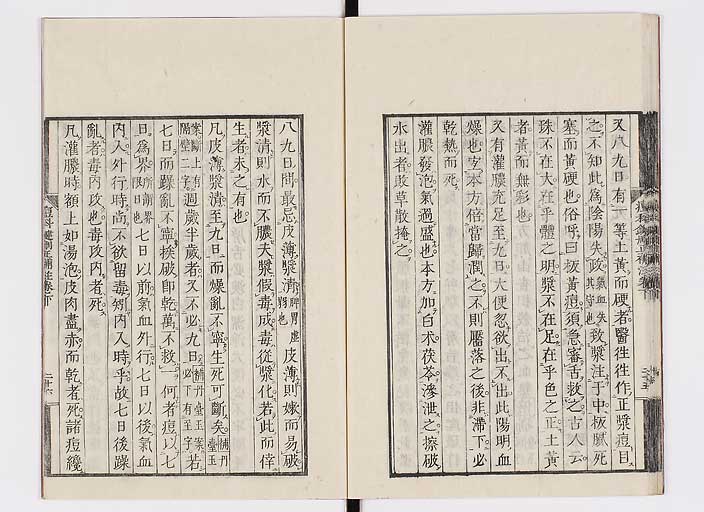 又八九日有一等土黃而硬者醫徃徃作正漿痘目
之不知此爲陰陽失政氣血失其守也致漿注于中板膩死
塞而黃硬也俗呼曰板黃痘須急審舌救之古人云
珠不在大在乎體之明漿不在足在乎色之正土黃
者黃而無彩也
又有灌膿充足至九日大便忽欲出不出此陽明血
燥也宜本方倍當歸潤之不則靨落之後非滯下必
乾熱而死
灌膿發泡氣過盛也本方加白术茯苓滲泄之擦破
水出者敗草散掩之
八九日間最忌皮薄漿清脾胃虛弱也皮薄則嫩而易破
漿清則水而不膿夫漿假毒成毒從漿化若此而倖
生者未之有也
凡皮薄漿清至九日而燥亂不寧生死可斷矣補丹臺玉
案斷上有陽壁二字週歲半歲者又不必九日補丹臺玉案必下有至字若
七日而躁亂不寧挨破即乾萬不救一何者痘以七
日爲界所謂界限日也七日以前氣血外行七日以後氣血
內入外行時尚不欲留毒矧內入時乎故七日後躁
亂者毒內攻也毒攻內者死
凡灌膿時額上如湯泡皮肉盡赤而乾者死諸痘纔
二十六